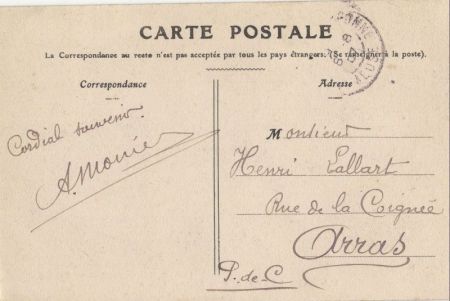 CARTE POSTALE
La Correspondance au recto n'est pas acceptée par tous les pays étrangers. (Se renseigner à la poste).
Correspondance
Cordial souvenir.
Adresse
Monsieur
Henri Lallart
Rue de la Coignée
Arras
P.-de-C